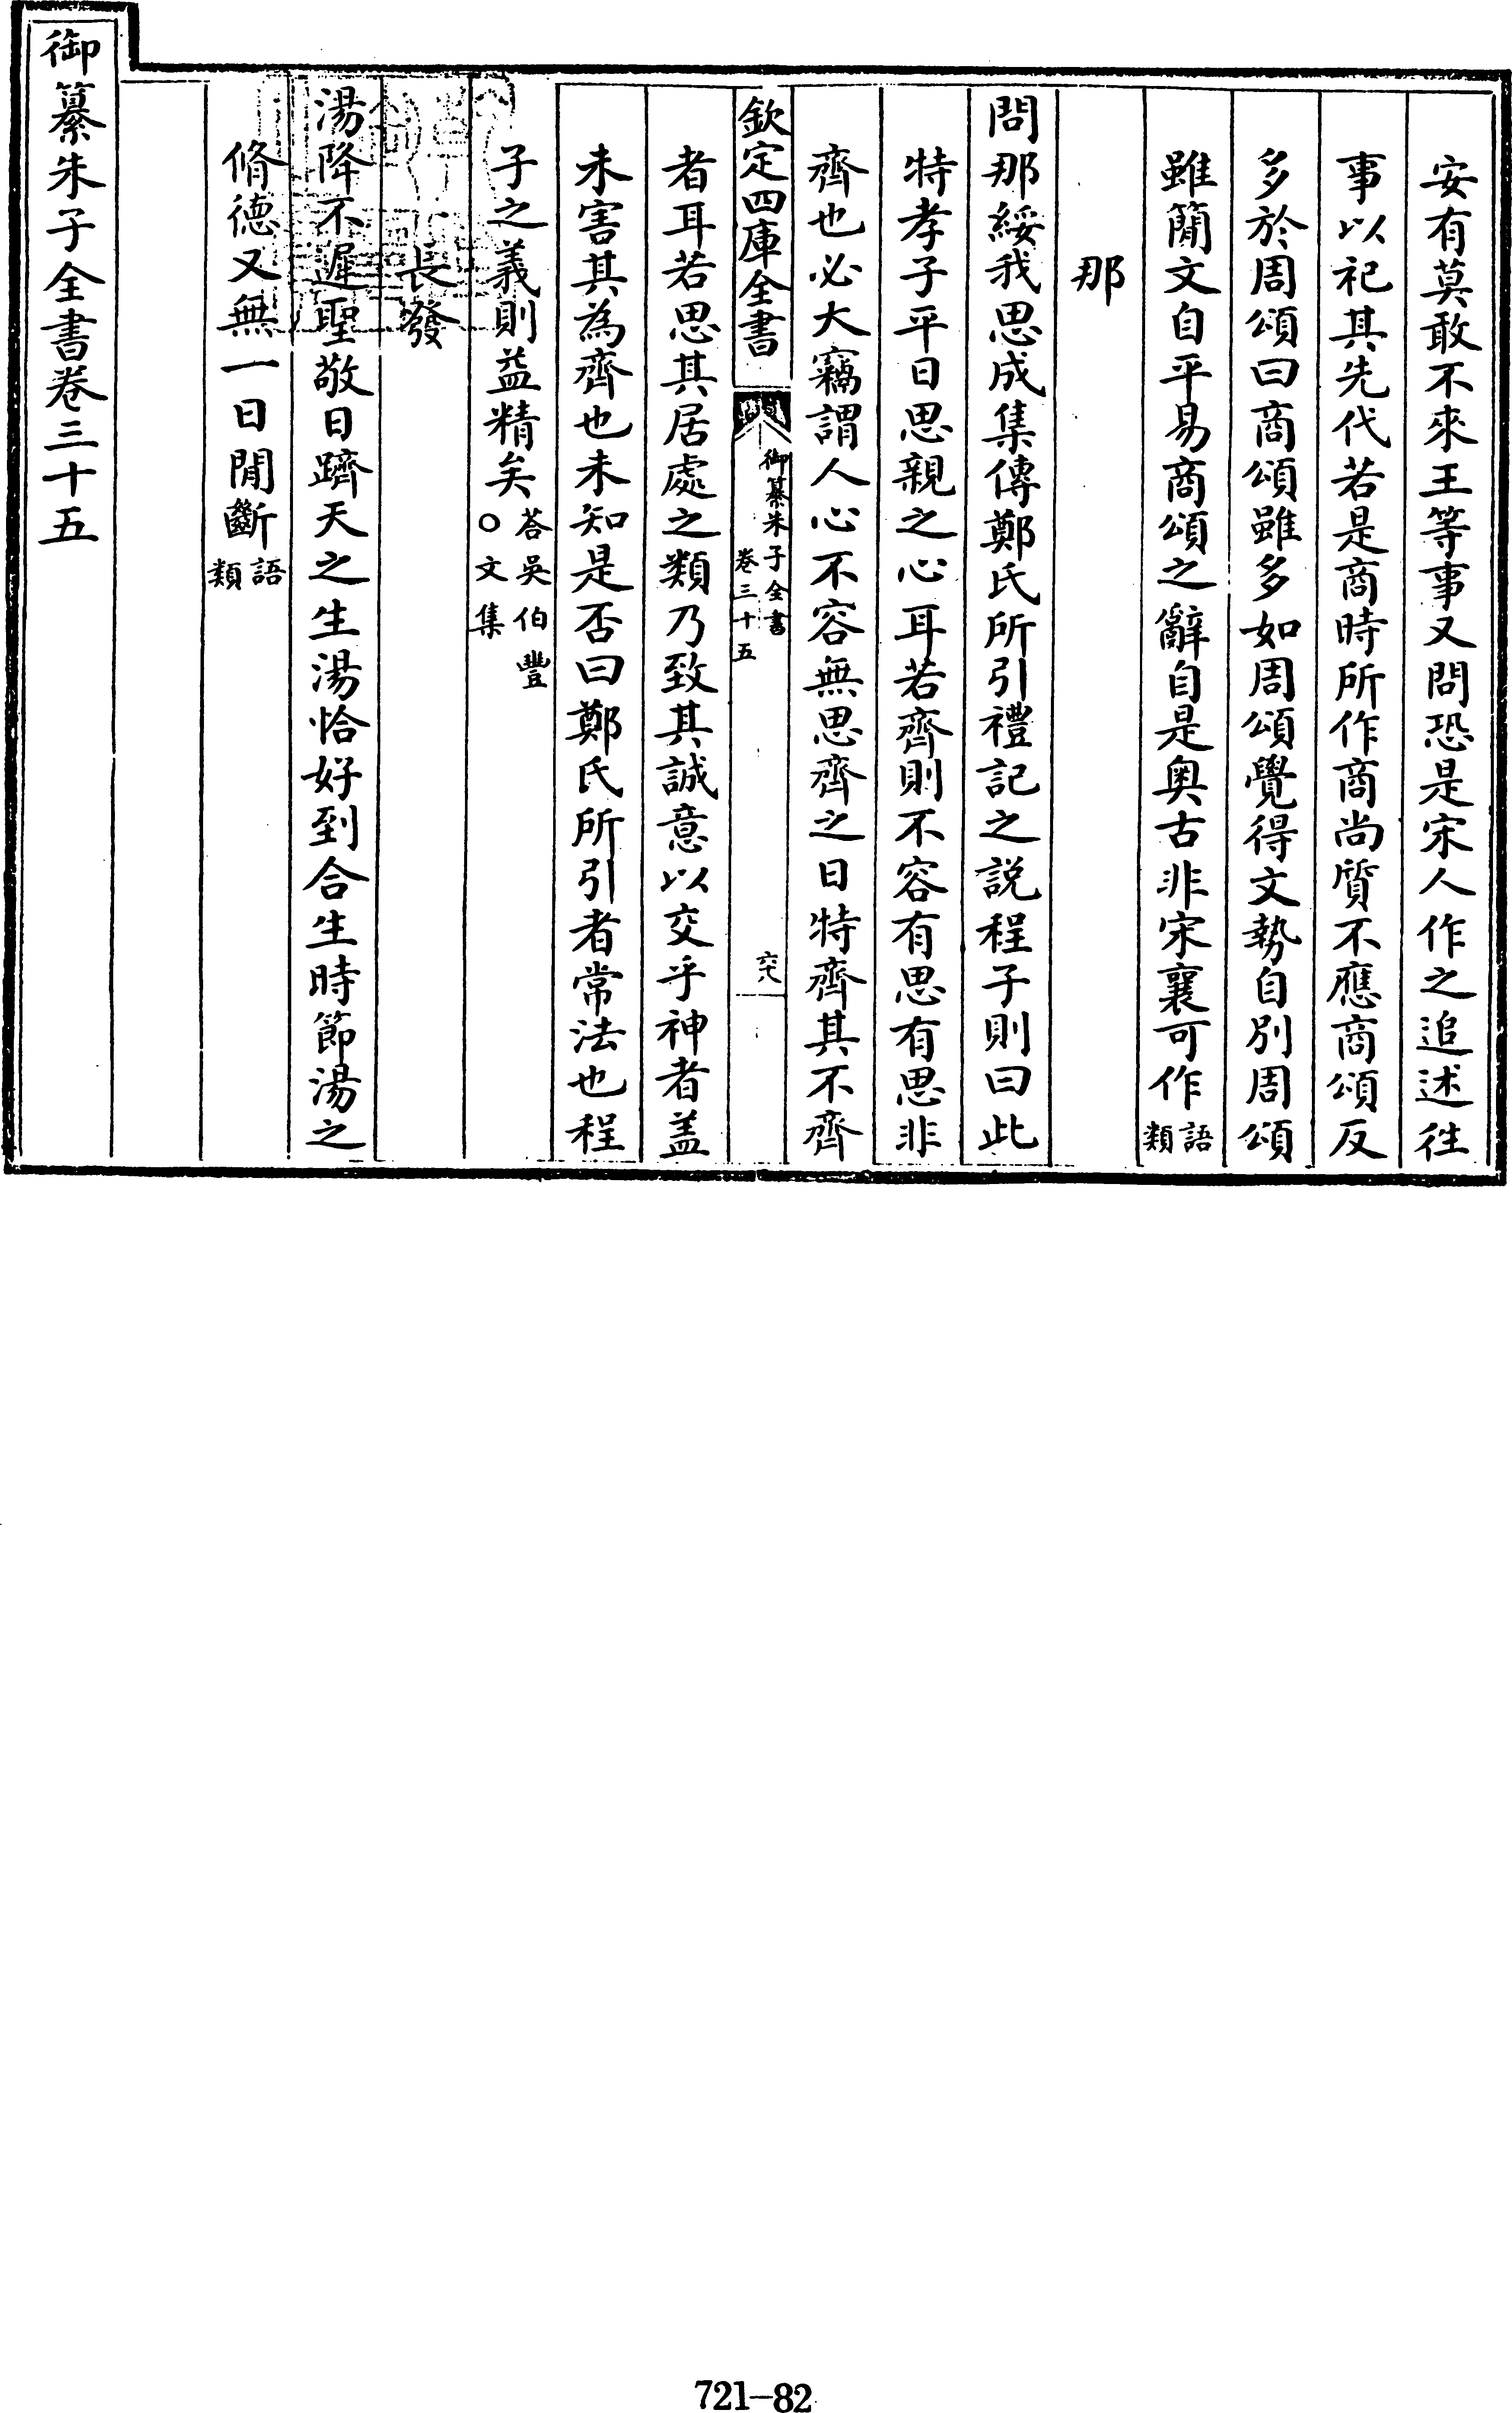 安有莫敢不來王等事又問恐是宋人作之追述往
事以祀其先代若是商時所作商尚質不應商頌反
多於周頌曰商頌雖多如周頌覺得文勢自別周頌
雖簡文自平易商頌之辭自是奧古非宋襄可作語類
那
問那綏我思成集傳鄭氏所引禮記之説程子則曰此
特孝子平日思親之心耳若齊則不容有思有思非
齊也必大竊謂人心不容無思齊之日特齊其不齊
欽定四庫全書
御纂朱子全書
卷三十五
六八
者耳若思其居處之類乃致其誠意以交乎神者盖
未害其為齊也未知是否曰鄭氏所引者常法也程
子之義則益精矣答吳伯豐○文集
長發
湯降不遲聖敬日躋天之生湯恰好到合生時節湯之
脩德又無一日間斷語類
御纂朱子全書卷三十五
721-82